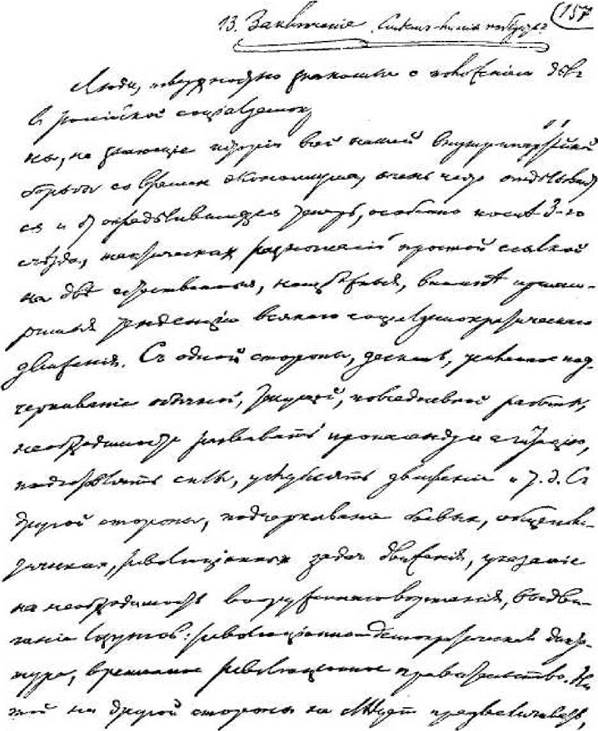 13. Заключеніе. Смѣемъ-ли мы побѣдить? 157
Люди, поверхностно знакомые с положеніем дѣл
в россійской соціалдемокр
ты, не знающіе исторіи всей нашей внутрипартійной
борьбы со времен экономизма, очень часто отдѣлывают
ся и от опредѣлившихся теперь, особенно послѣ 3-го
съѣзда, тактических разногласій простой ссылкой
на двѣ естественныя, неизбѣжныя, вполнѣ прими-
римыя тенденціи всякаго соціалдемократическаго
движенія. Съ одной стороны, дескать, усиленное под-
черкиваніе обычной, текущей, повседневной работы,
необходимости развивать пропаганду и агитацію,
подготовлять силы, углублять движеніе и т. д. Съ
другой стороны, подчеркиваніе боевых, общепол-
тических, революціонных задач движенія, указаніе
на необходимость вооруженнаго возстанія, выдви-
ганіе лозунгов: революціонно-демократическая дикта-
тура, временное революціонное правительство. Ни
той ни другой стороны не преувеличивать,